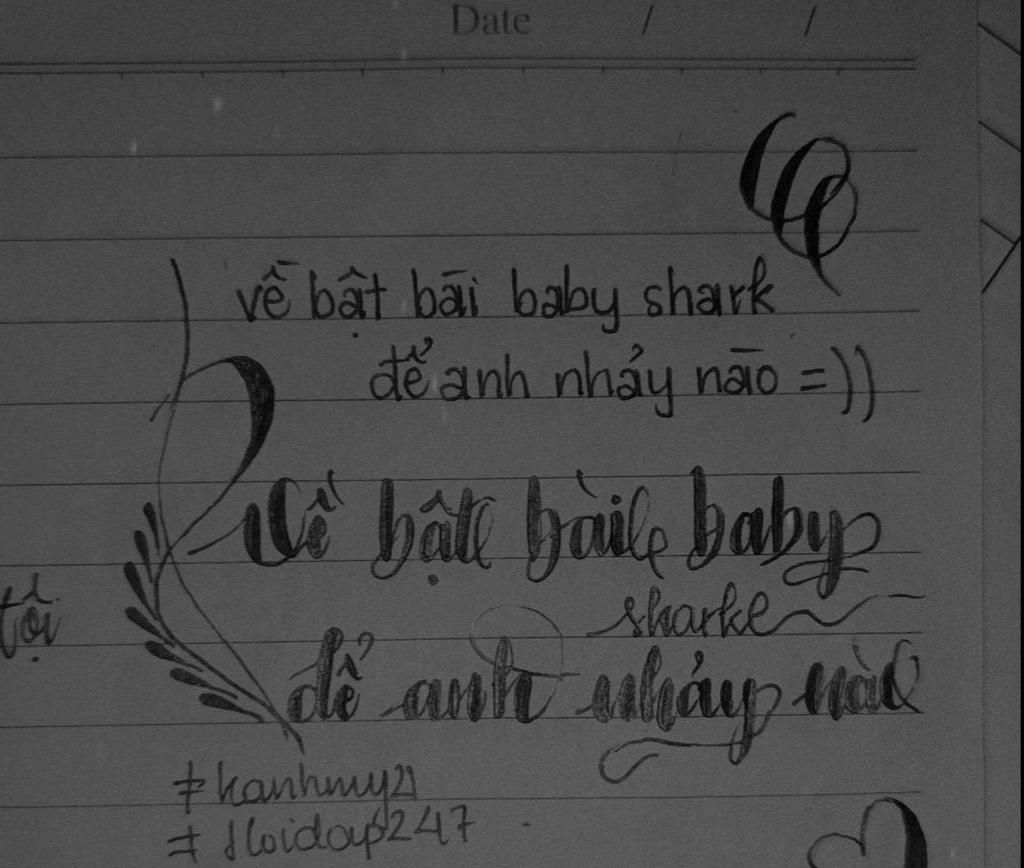 Date / /
về bật bài baby shark
để anh nhảy nào =))
Về bật bài baby
shark
để anh nhảy nào
tội
#kanhmy21